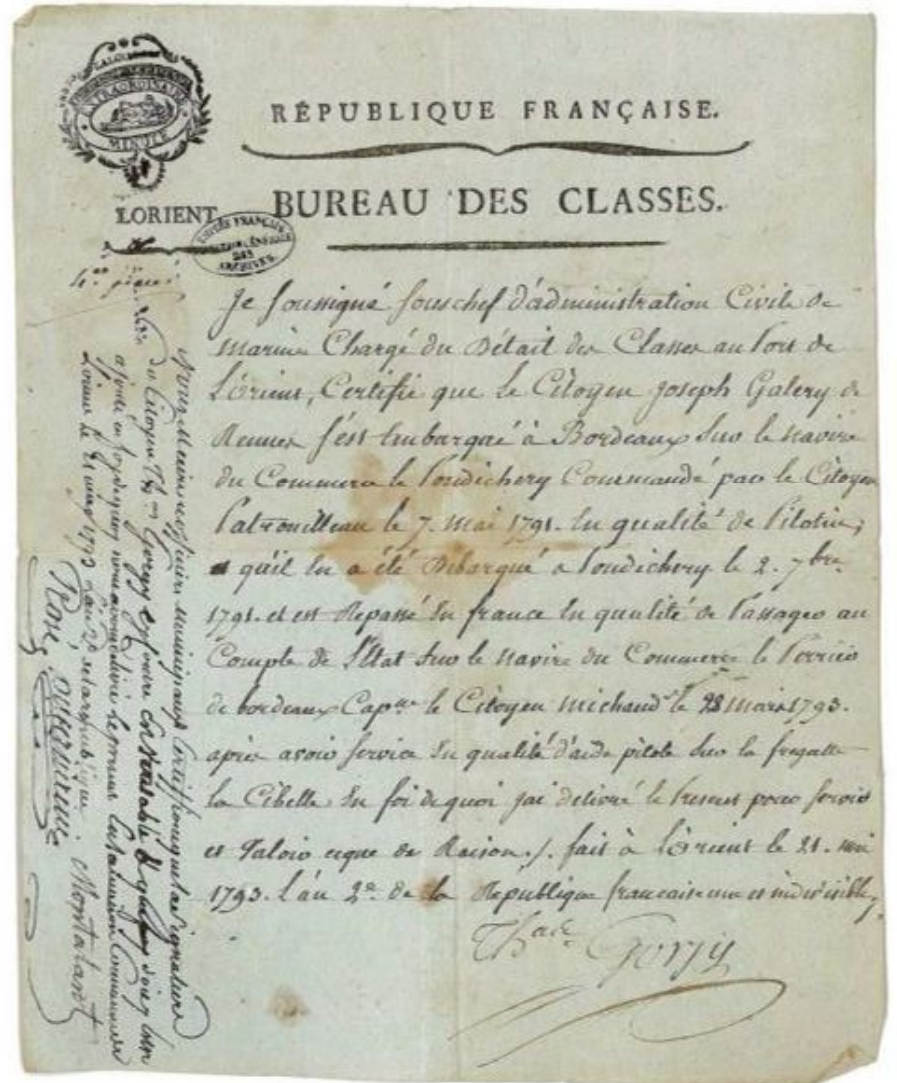 EXTRAORDINAIRE
MINUTE
RÉPUBLIQUE FRANÇAISE.
LORIENT
BUREAU DES CLASSES.
ARCHIVES
DES
Je soussigné souschef d'administration Civile de
Marine Chargé du Détail des Classes au Port de
L'Orient, Certifie que le Citoyen Joseph Galery de
Rennes s'est Embarqué à Bordeaux sur le navire
du Commerce le Pondichery Commandé par le Citoyen
Patronilleau le 7. Mai 1791. En qualité de Pilotin,
qu'il en a été Débarqué a Pondichery le 2. 7bre
1791. et est Repassé En france En qualité de Passager au
Compte de l'Etat sur le navire du Commerce le
de bordeaux Capne le Citoyen michaud le 28 Mars 1793.
après avoir servi En qualité d'aide pilote sur la fregatte
la Cibelle En foi de quoi j'ai délivré le Present pour servir
et Valoir ce que de Raison ./. fait à L'Orient le 21. mai
1793. l'an 2e de la Republique francaise une et indivisible,
Gorjy
Nous Maire et officiers municipaux Certifions que la Signature
du Citoyen Gorjy cy
ajoutée en foy de quoy nous avons délivré le present
Lorient le 21 may 1793 l'an 2e de la republique
Montalant